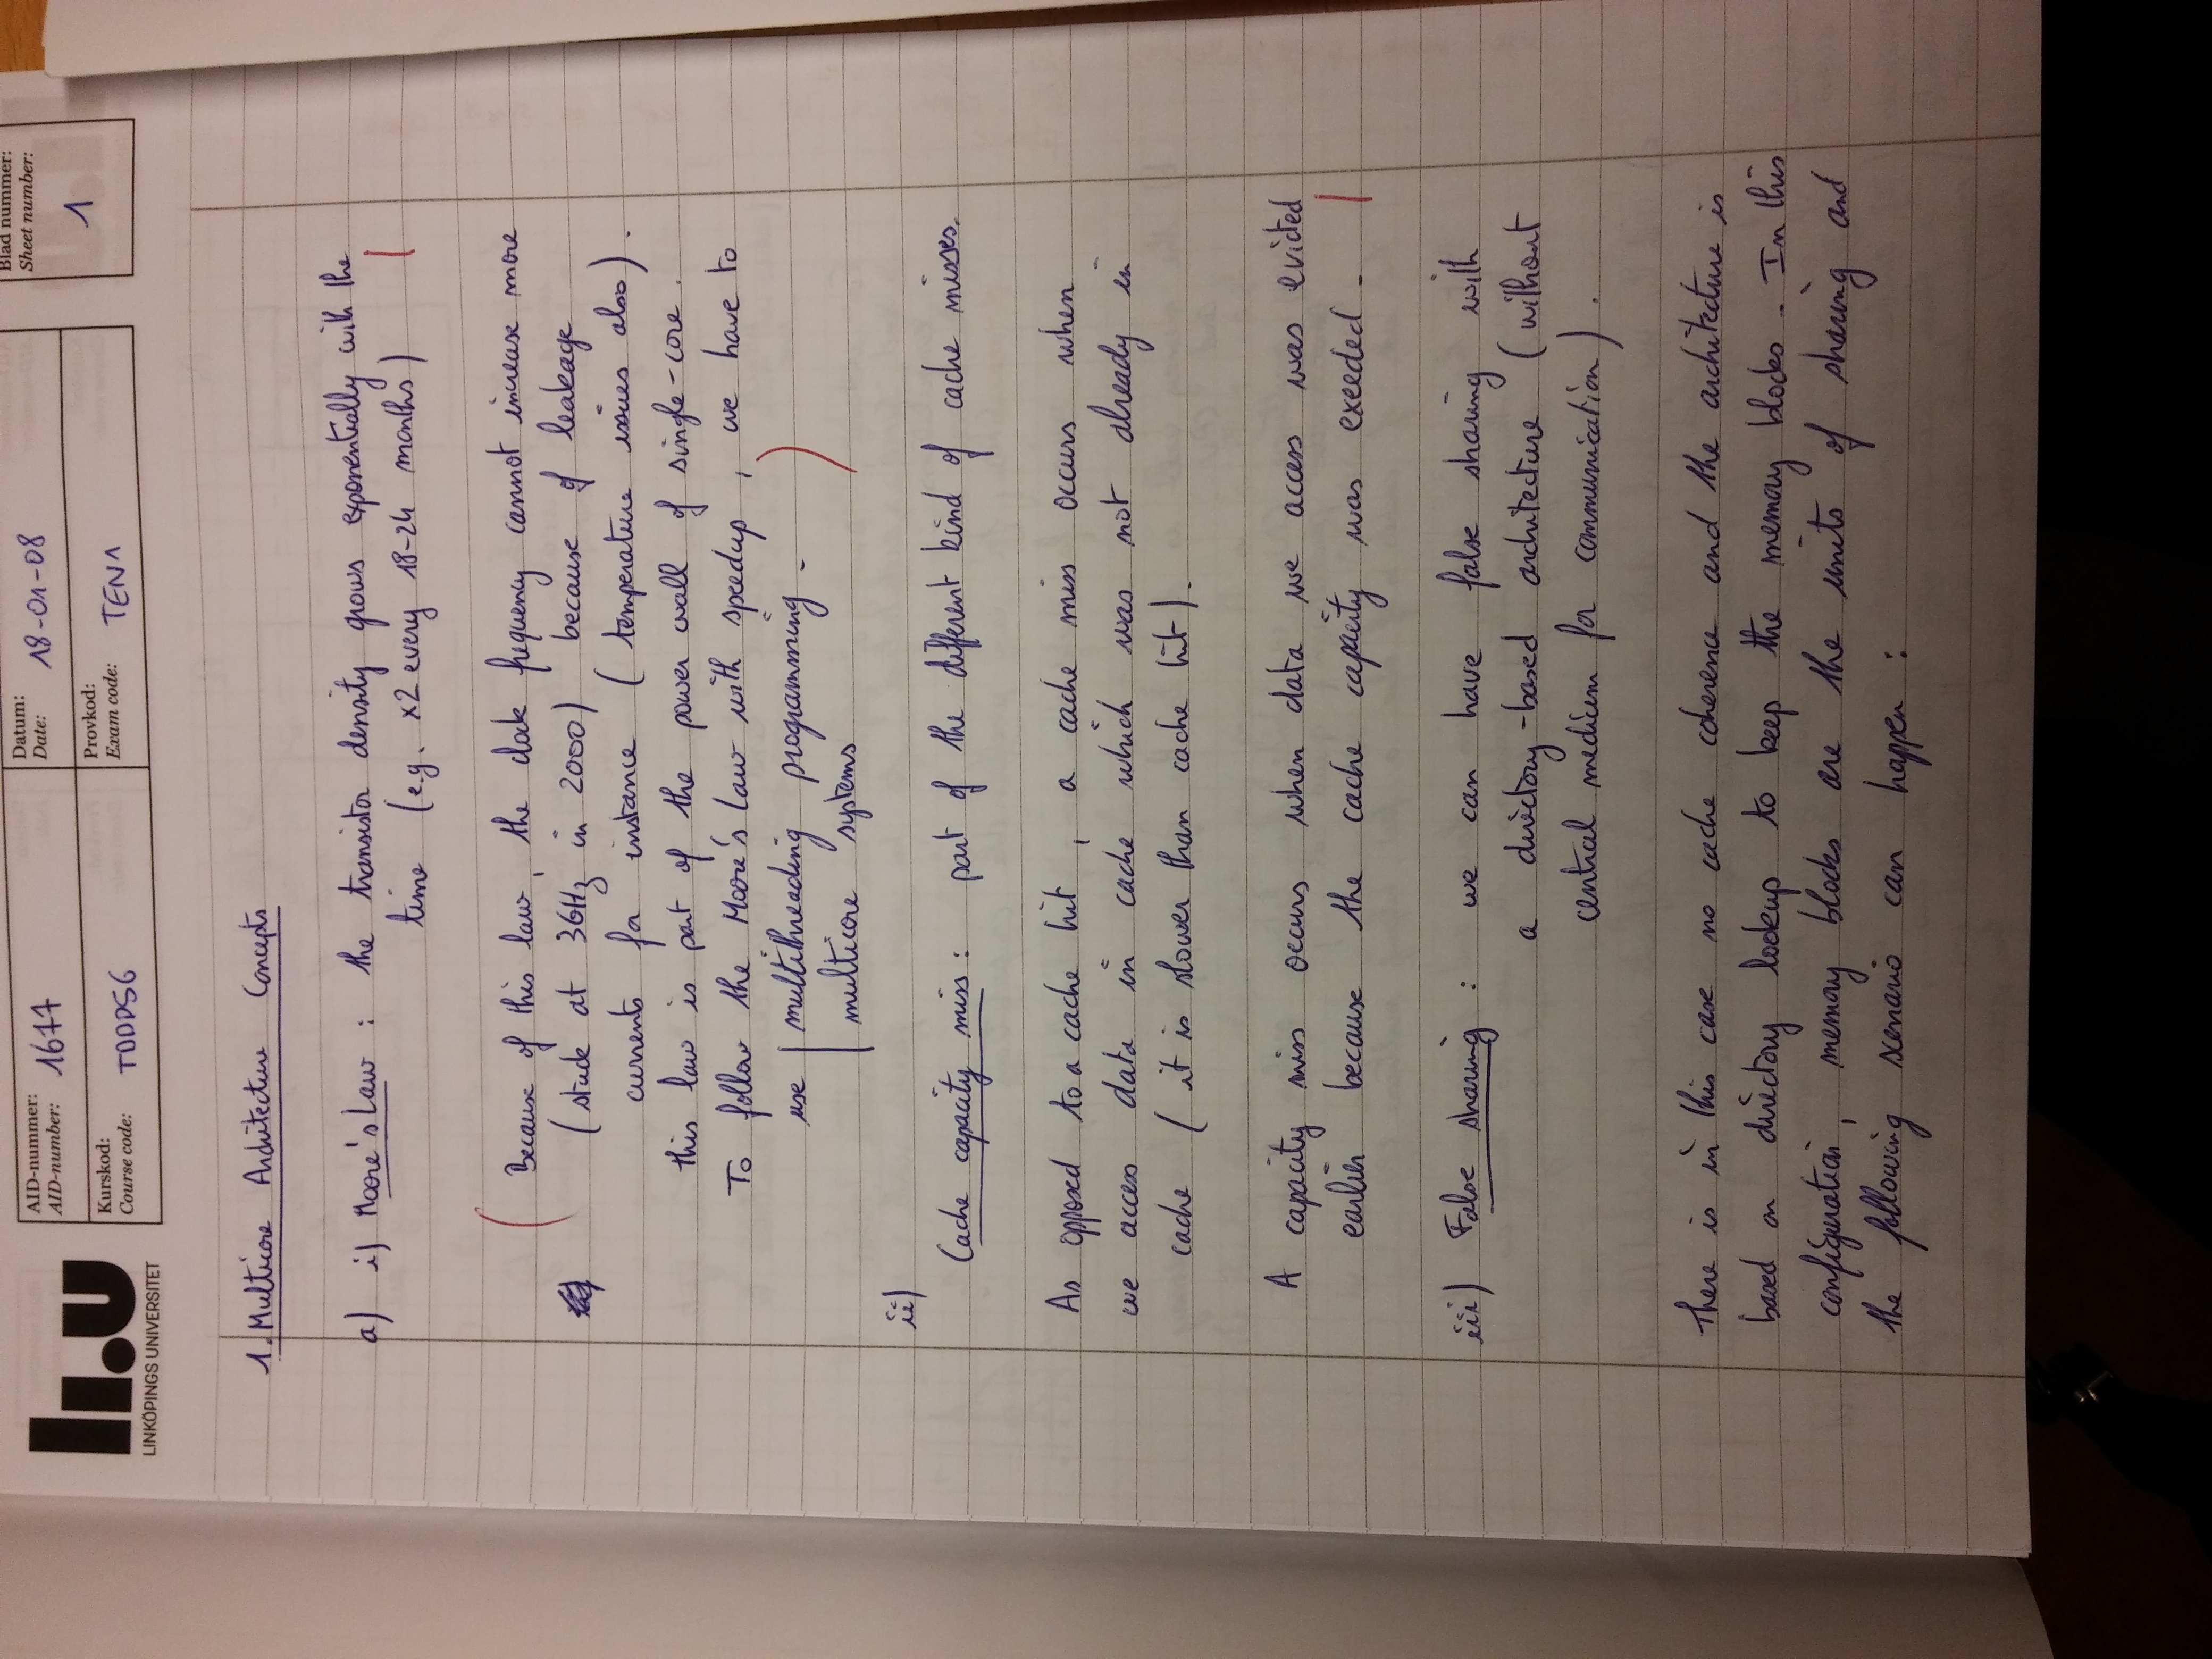 LINKÖPINGS UNIVERSITET
AID-nummer:
AID-number: 1677
Datum:
Date: 18-01-08
Blad nummer:
Sheet number:
1
Kurskod:
Course code: TDDD56
Provkod:
Exam code: TEN1
1. Multicore Architecture Concepts
a) i) Moore's Law : the transistor density grows exponentially with the
time (eg. x2 every 18-24 months)
Because of this law, the clock frequency cannot increase more
(stuck at 3GHz in 2000) because of leakage
currents for instance (temperature issues also).
this law is part of the power wall of single-core.
To follow the Moore's Law with speedup, we have to
use | multithreading programming.
| multicore systems
ii)
Cache capacity miss : part of the different kind of cache misses.
As opposed to a cache hit, a cache miss occurs when
we access data in cache which was not already in
cache (it is slower than cache hit).
A capacity miss occurs when data we access was evicted
earlier because the cache capacity was exeeded.
iii) False sharing : we can have false sharing with
a directory-based architecture (without
central medium for communication).
There is in this case no cache coherence and the architecture is
based on directory lookup to keep the memory blocks. In this
configuration, memory blocks are the units of sharing and
the following scenario can happen :